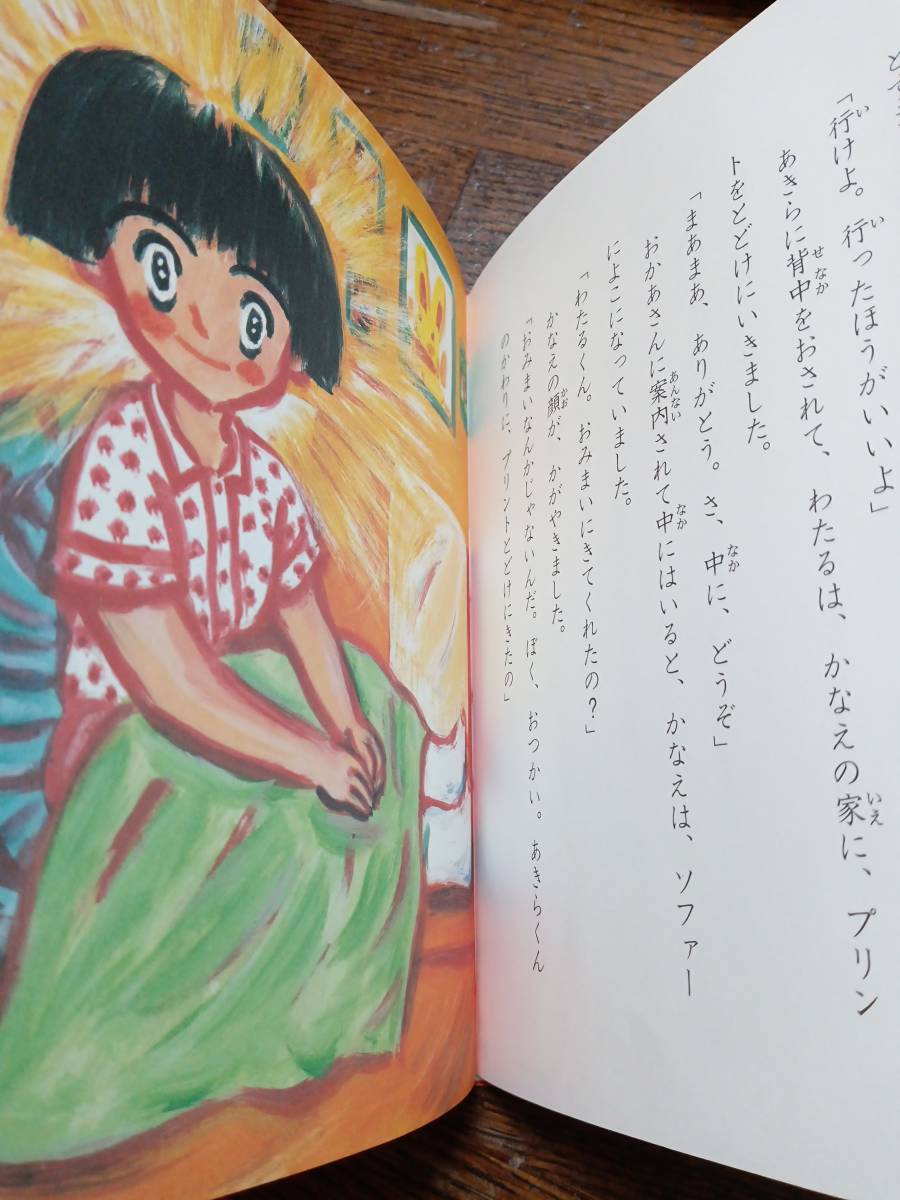 「行けよ。行ったほうがいいよ」
あきらに背中をおされて、わたるは、かなえの家に、プリン
トをとどけにいきました。
「まあまあ、ありがとう。さ、中に、どうぞ」
おかあさんに案内されて中にはいると、かなえは、ソファー
によこになっていました。
「わたるくん。おみまいにきてくれたの？」
かなえの顔が、かがやきました。
「おみまいなんかじゃないんだ。ぼく、おつかい。あきらくん
のかわりに、プリントとどけにきたの」